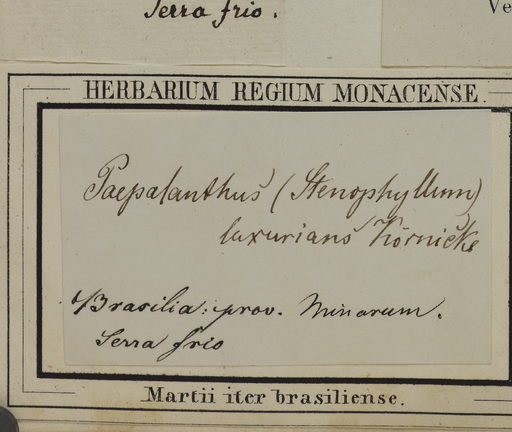 Serra frio.
Ve
HERBARIUM REGIUM MONACENSE.
Paepalanthus (Stenophyllum)
luxurians Körnicke
Brasilia: prov. Minarum.
Serra frio
Martii iter brasiliense.